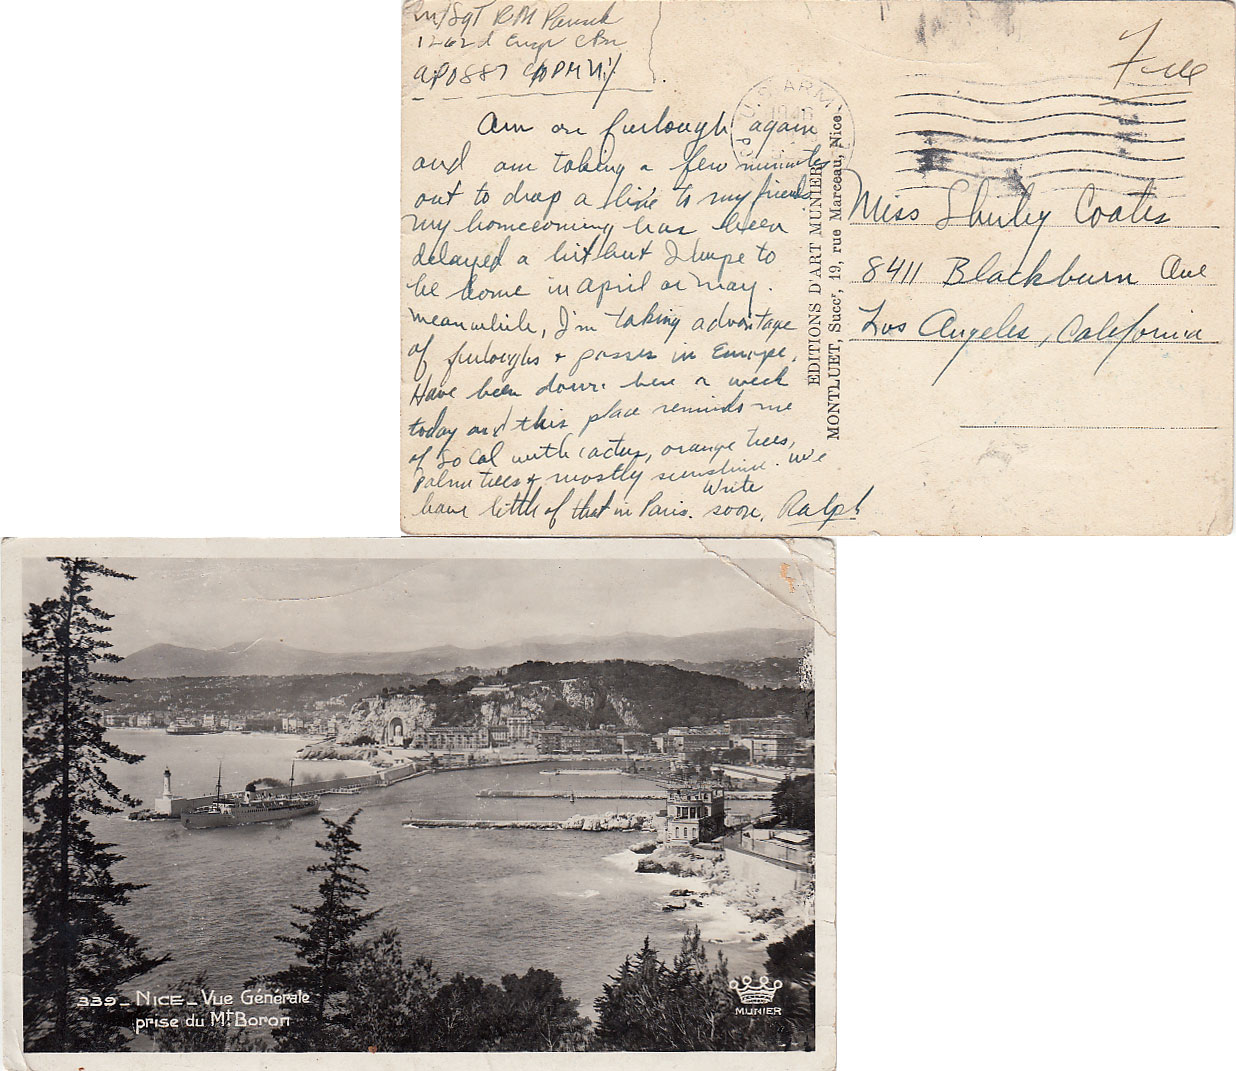 M/Sgt R M
1262d Engr C Bn
APO 887 c/o PM NY
Free
U.S. ARMY
1946
Am on furlough again
and am taking a few minutes
out to drop a line to my friends.
My homecoming has been
delayed a bit but I hope to
be home in April or May.
Meanwhile, I'm taking advantage
of furloughs + passes in Europe.
Have been down here a week
today and this place reminds me
of So Cal with cactus, orange trees,
palm trees + mostly sunshine. We
have little of that in Paris. Write
soon, Ralph
EDITIONS D'ART MUNIER
MONTLUET, Succr, 19, rue Marceau, Nice.
Miss Shirley Coates
8411 Blackburn Ave
Los Angeles, California
339 _ NICE _ Vue Générale
prise du Mt Boron
MUNIER